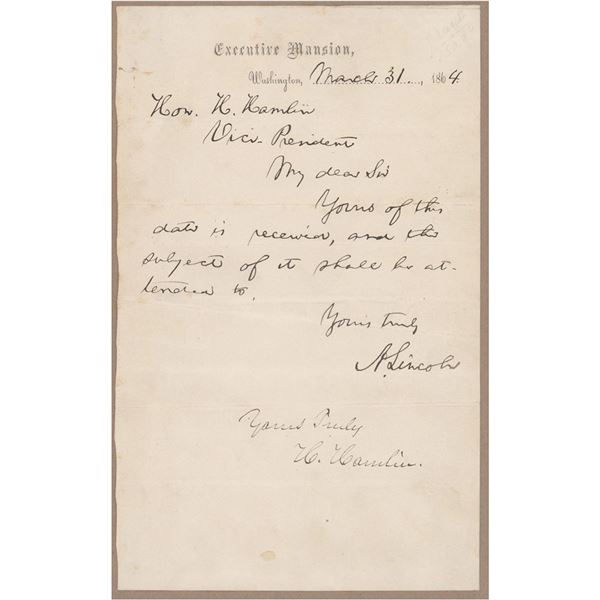 Executive Mansion,
Washington, March 31, 1864
Hon. H. Hamlin
Vice-President
My dear Sir
Yours of this
date is received, and the
subject of it shall be at-
tended to.
Yours truly
A. Lincoln
Yours Truly
H. Hamlin.